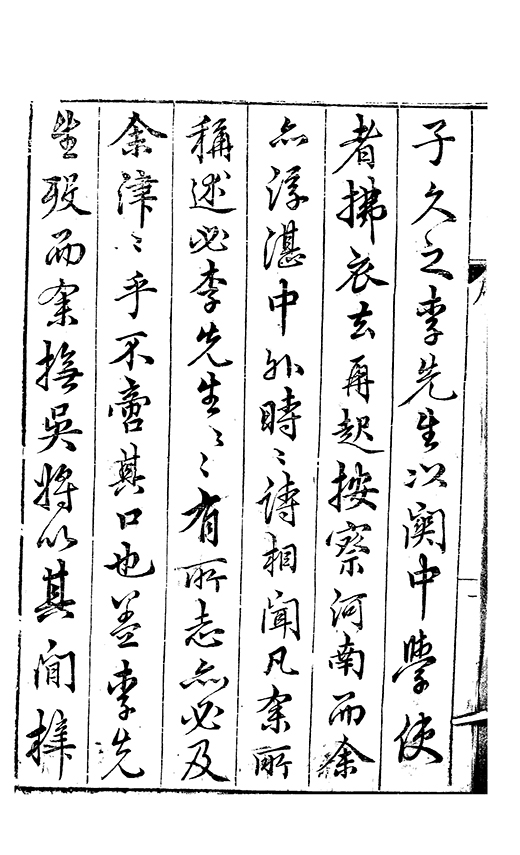 子久之李先生以關中學使
者拂衣去再起按察河南而余
亦浮湛中外時〻詩相聞凡余所
稱述必李先生〻〻有所志亦必及
余津〻乎不啻其口也蓋李先
生歿而余撫吳將以其間梓